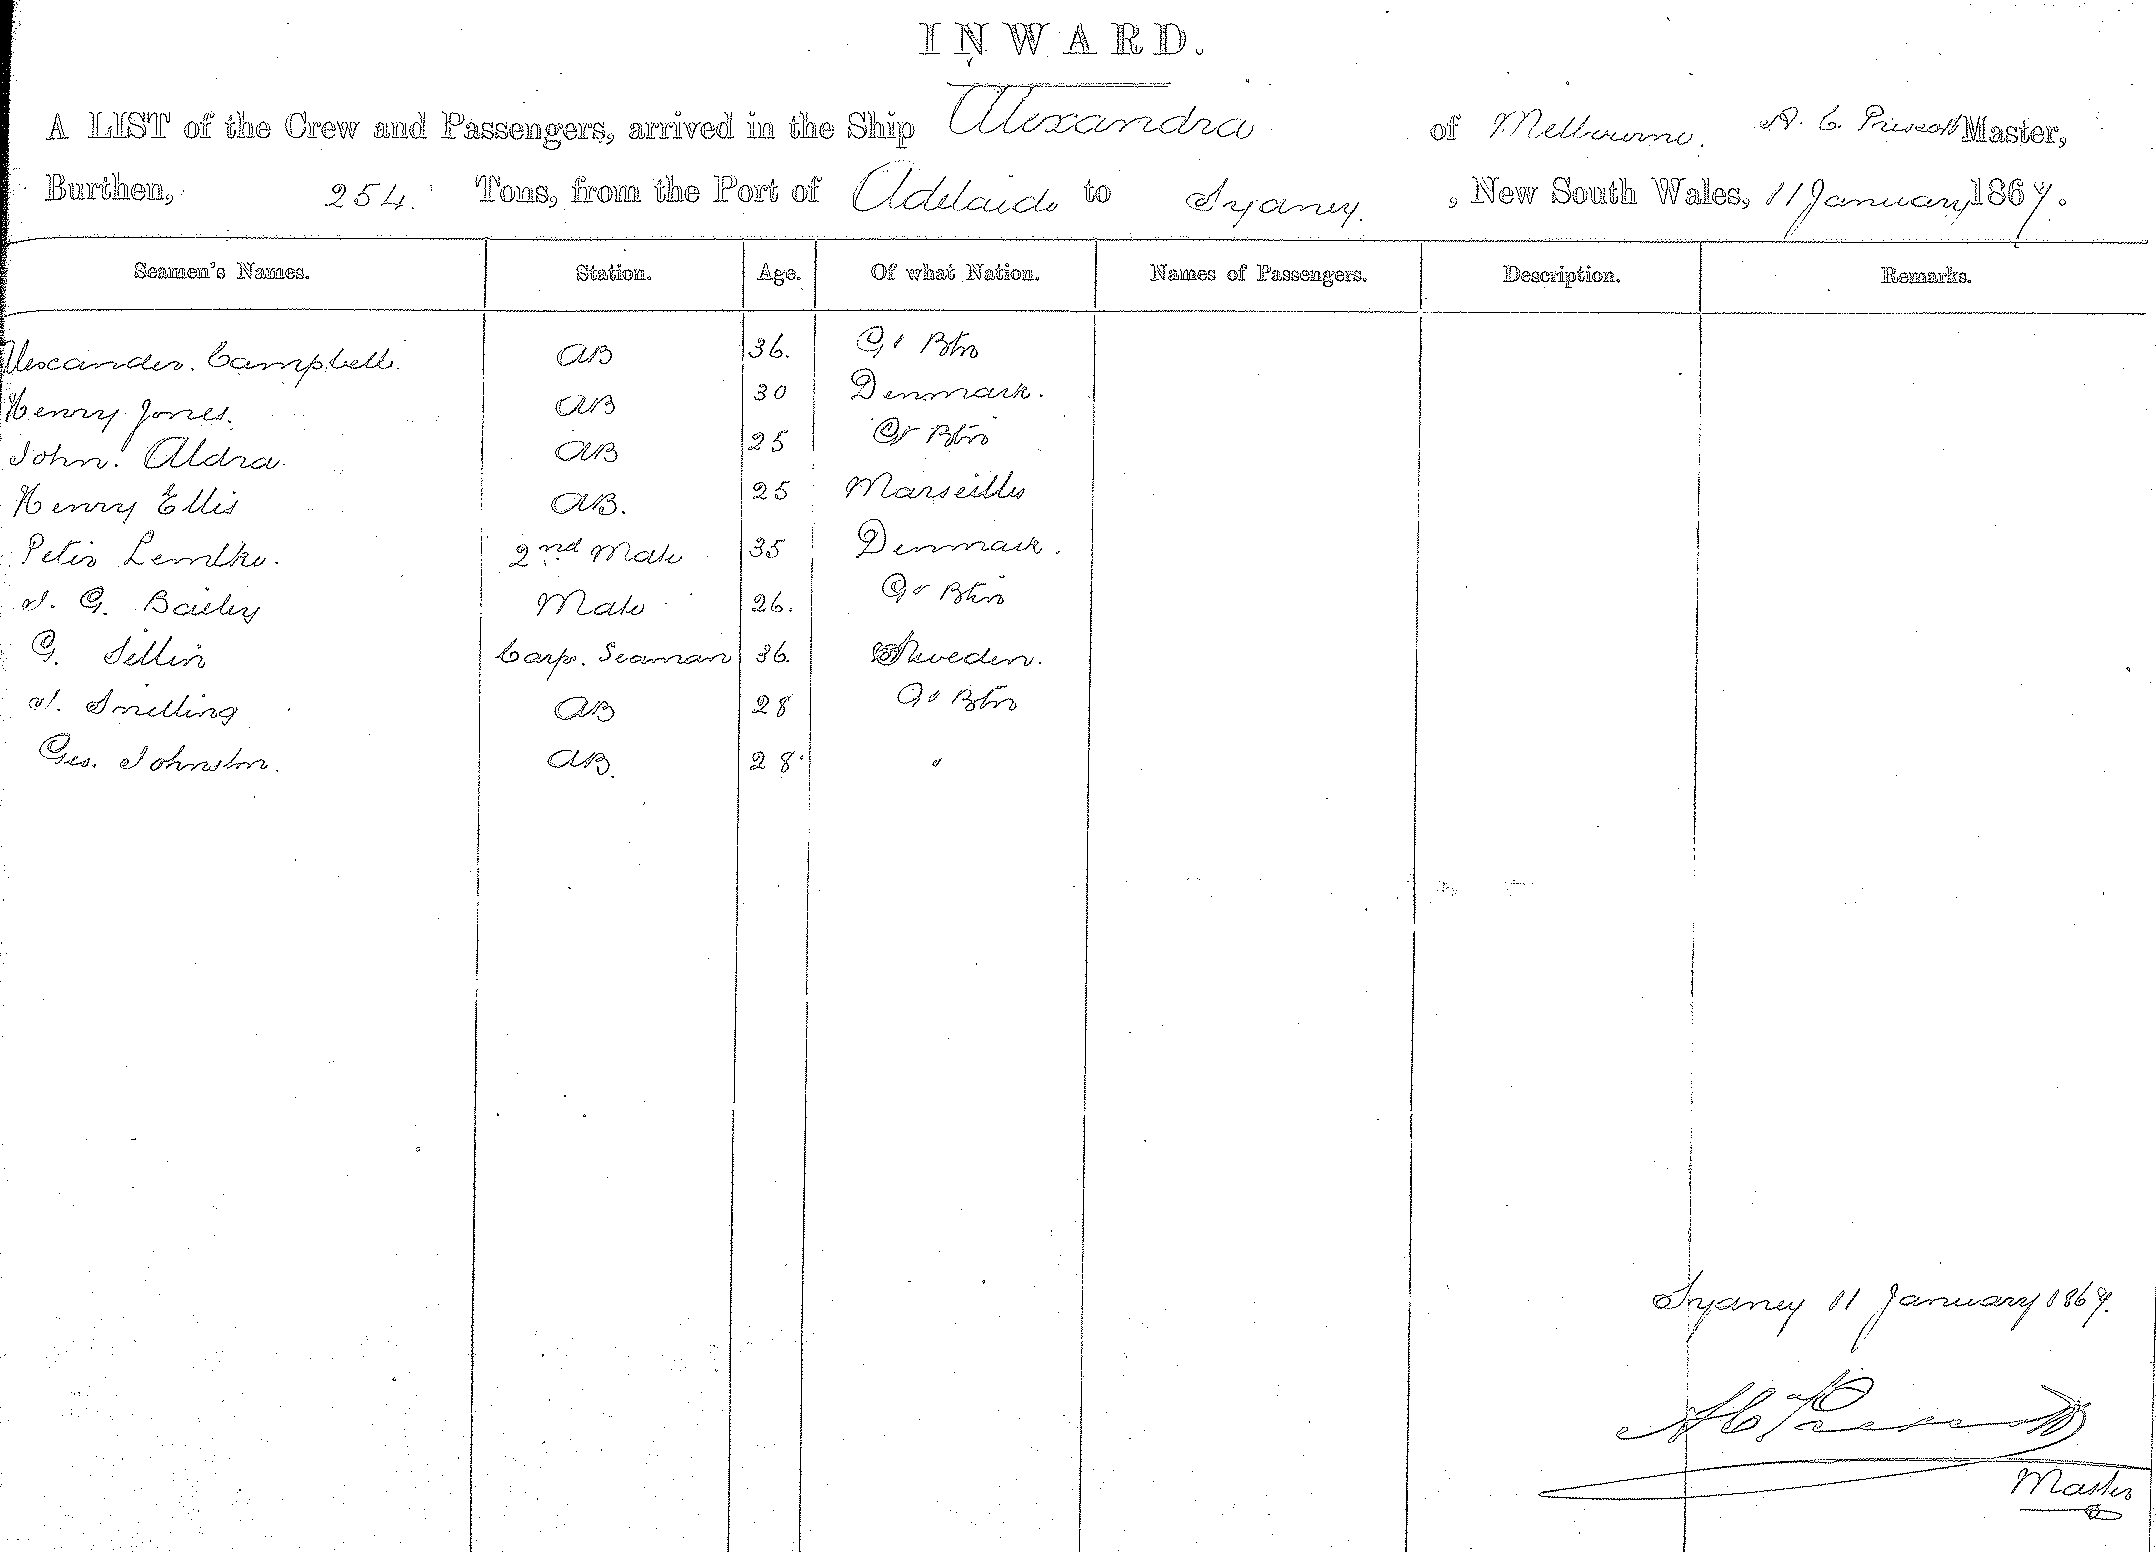 INWARD.
A LIST of the Crew and Passengers, arrived in the Ship Alexandra of Melbourne. A. C. Prescott Master,
Burthen, 254. Tons, from the Port of Adelaide to Sydney. , New South Wales, 11 January 1867.
Seamen's Names. Station. Age. Of what Nation. Names of Passengers. Description. Remarks.
Alexander. Campbell. AB 36. Gt Btn
Henry Jones. AB 30 Denmark.
John. Aldra. AB 25 Gt Btn
Henry Ellis AB. 25 Marseilles
Peter Lemtke. 2nd Mate 35 Denmark.
J. G. Bailey Mate 26. Gt Btn
G. Sellin Carp. Seaman 36. Sweden.
J. Snelling AB 28 Gt Btn
Geo. Johnston. AB. 28 "
Sydney 11 January 1867.
A C Prescott
Master